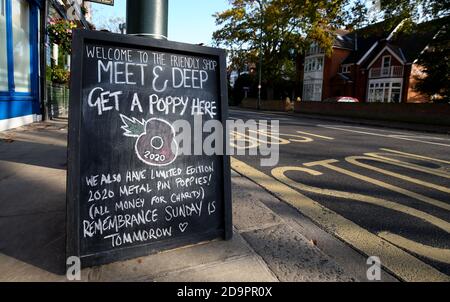 WELCOME TO THE FRIENDLY SHOP
MEET & DEEP
GET A POPPY HERE
2020
WE ALSO HAVE LIMITED EDITION
2020 METAL PIN POPPIES!
(ALL MONEY FOR CHARITY)
REMEMBRANCE SUNDAY IS
TOMMOROW
BUS
STOP
alamy
Image ID: 2D9PR0X
www.alamy.com